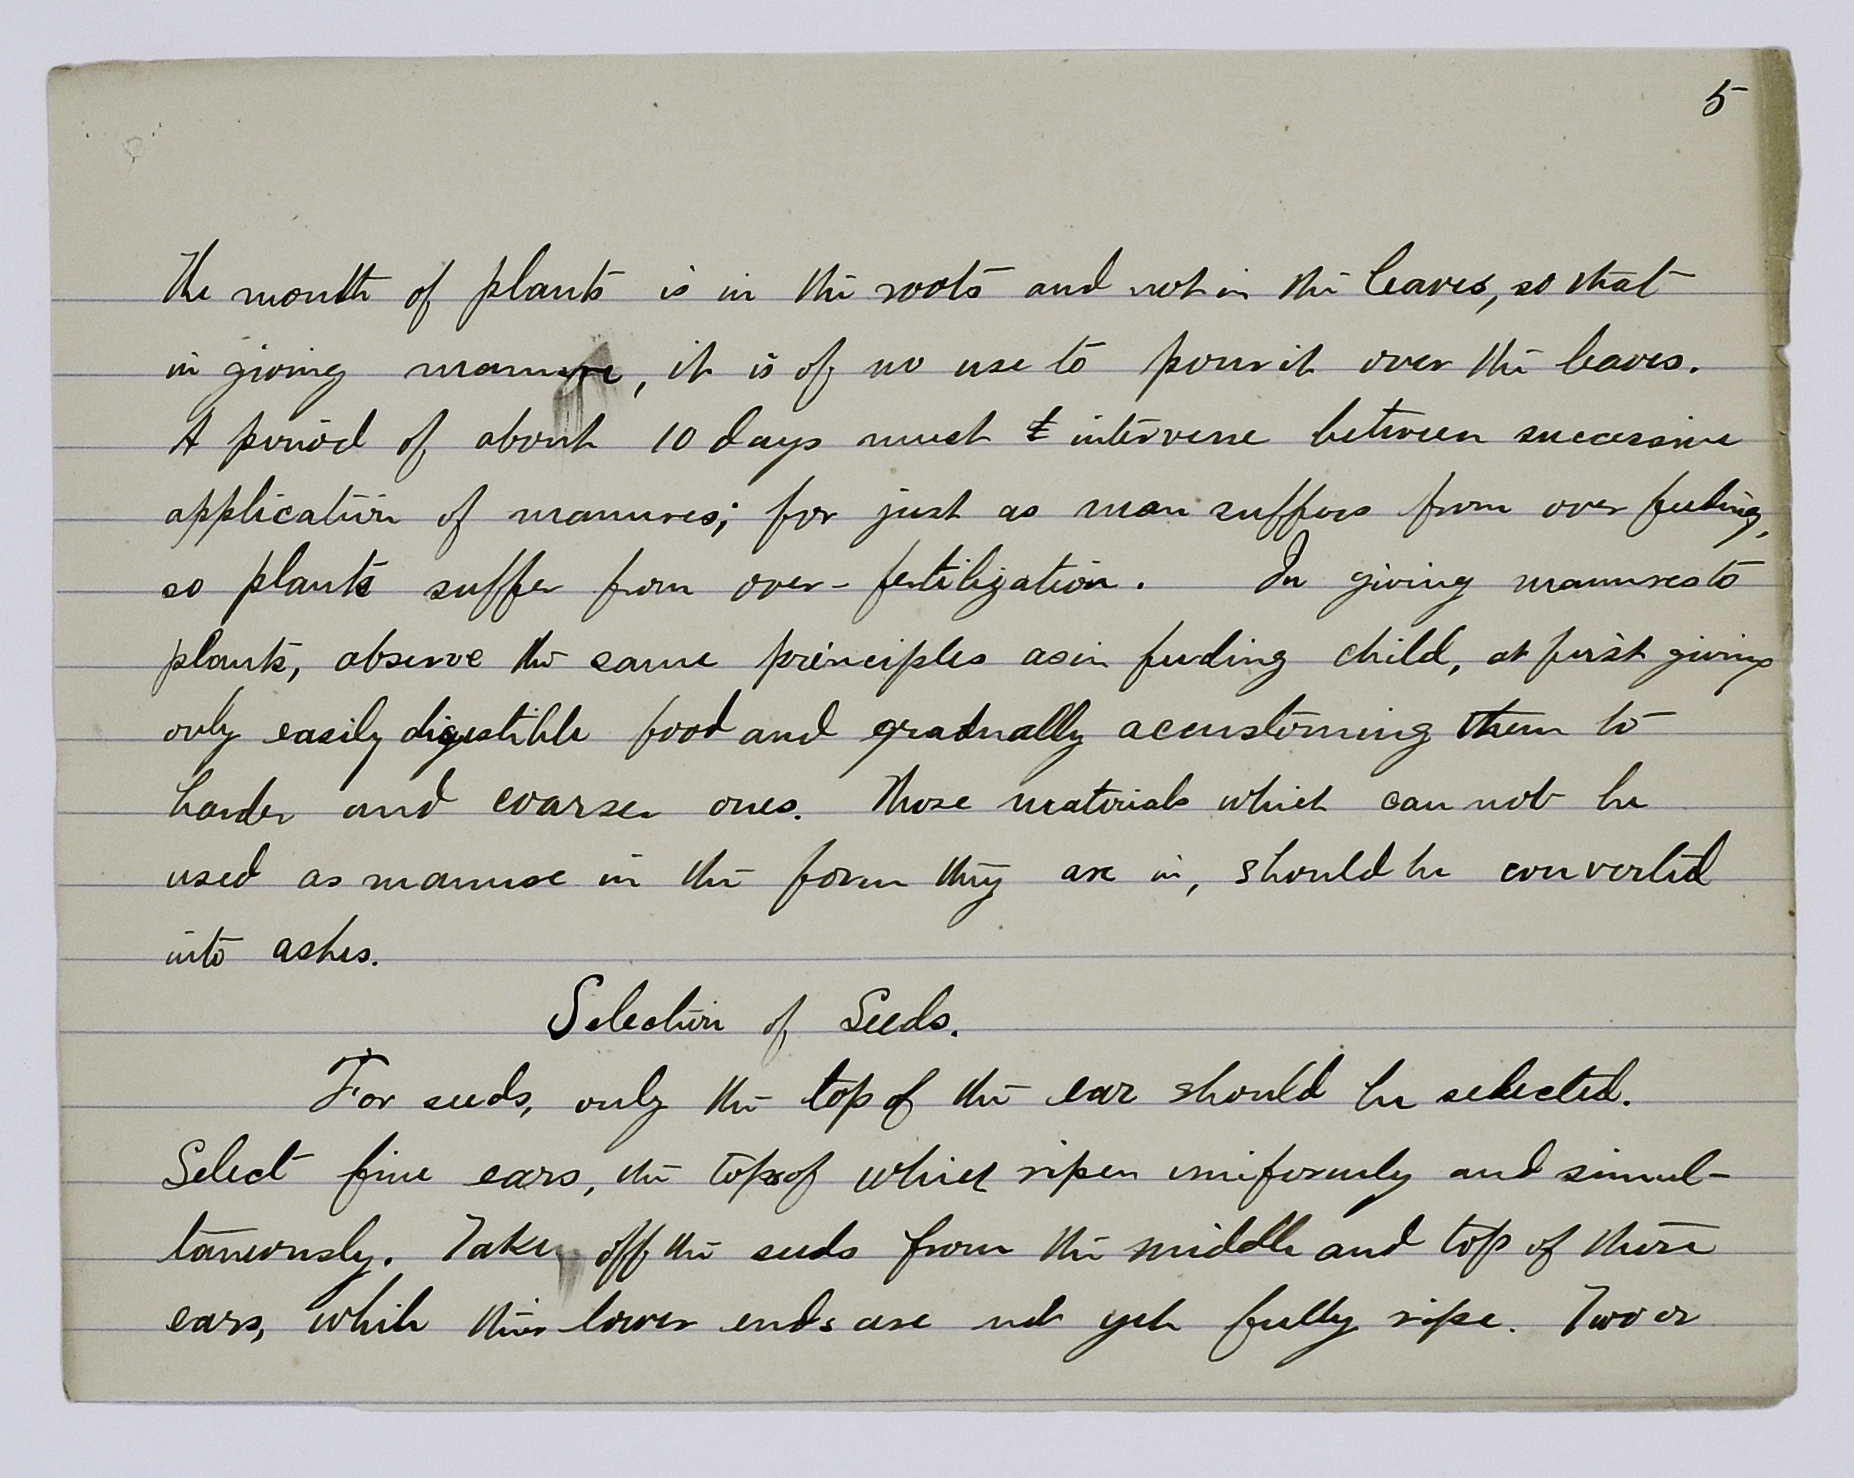 5
The mouth of plants is in the roots and not in the leaves, so that
in giving manure, it is of no use to pour it over the leaves.
A period of about 10 days must intervene between successive
application of manures; for just as man suffers from over feeding,
so plants suffer from over-fertilization. In giving manures to
plants, observe the same principles as in feeding child, at first giving
only easily digestible food and gradually accustoming them to
harder and coarser ones. Those materials which can not be
used as manure in the form they are in, should be converted
into ashes.
Selection of Seeds.
For seeds, only the top of the ear should be selected.
Select fine ears, the tops of which ripen uniformly and simul-
taneously. Take off the seeds from the middle and top of these
ears, while their lower ends are not yet fully ripe. Two or